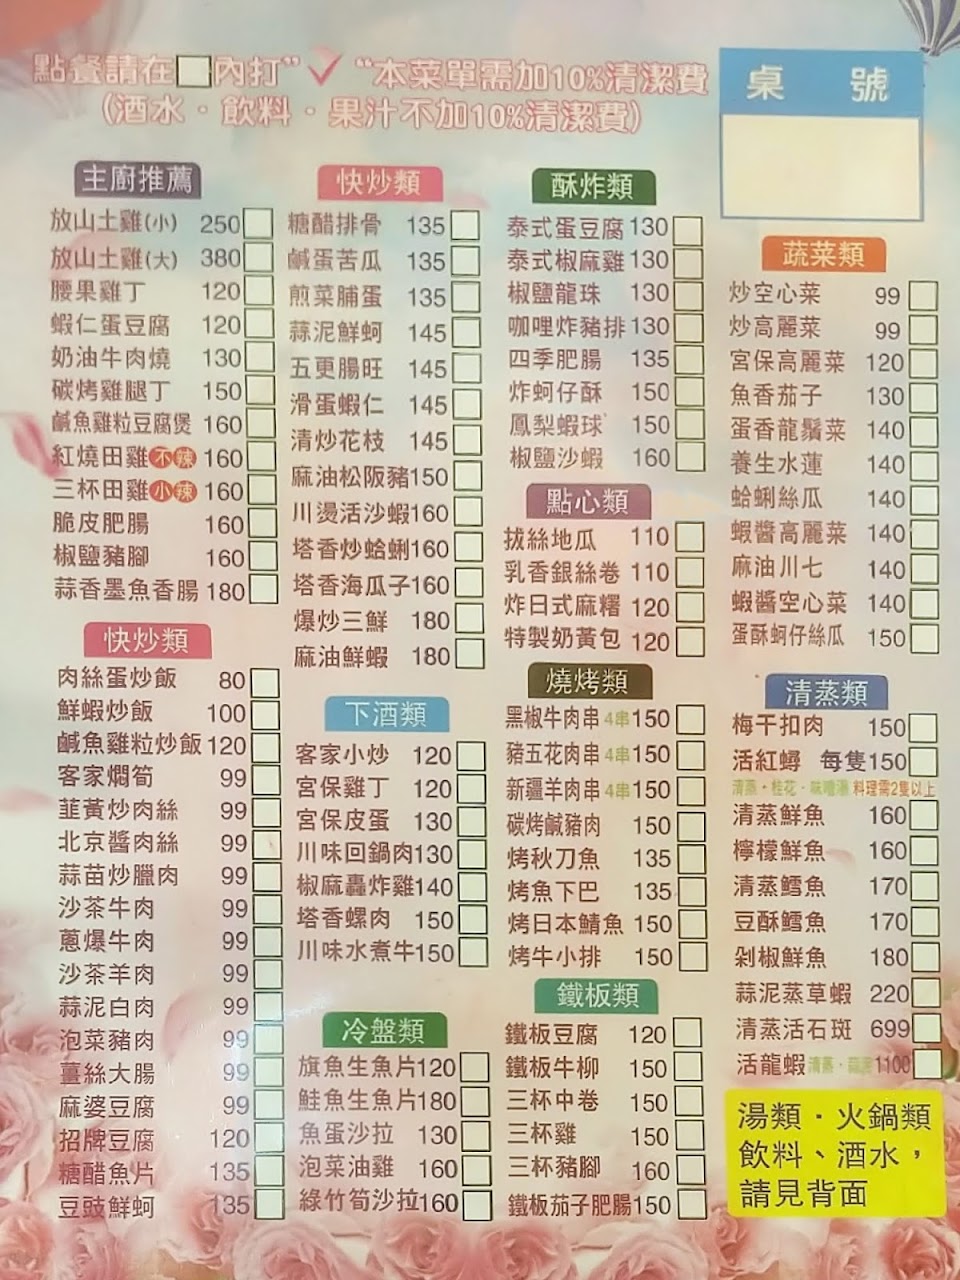 點餐請在□內打"✓"本菜單需加10%清潔費
(酒水・飲料・果汁不加10%清潔費)
桌 號
主廚推薦
放山土雞(小) 250
放山土雞(大) 380
腰果雞丁 120
蝦仁蛋豆腐 120
奶油牛肉燒 130
碳烤雞腿丁 150
鹹魚雞粒豆腐煲 160
紅燒田雞 不辣 160
三杯田雞 小辣 160
脆皮肥腸 160
椒鹽豬腳 160
蒜香墨魚香腸 180
快炒類
肉絲蛋炒飯 80
鮮蝦炒飯 100
鹹魚雞粒炒飯 120
客家燜筍 99
韮黃炒肉絲 99
北京醬肉絲 99
蒜苗炒臘肉 99
沙茶牛肉 99
蔥爆牛肉 99
沙茶羊肉 99
蒜泥白肉 99
泡菜豬肉 99
薑絲大腸 99
麻婆豆腐 99
招牌豆腐 120
糖醋魚片 135
豆豉鮮蚵 135
快炒類
糖醋排骨 135
鹹蛋苦瓜 135
煎菜脯蛋 135
蒜泥鮮蚵 145
五更腸旺 145
滑蛋蝦仁 145
清炒花枝 145
麻油松阪豬 150
川燙活沙蝦 160
塔香炒蛤蜊 160
塔香海瓜子 160
爆炒三鮮 180
麻油鮮蝦 180
下酒類
客家小炒 120
宮保雞丁 120
宮保皮蛋 130
川味回鍋肉 130
椒麻轟炸雞 140
塔香螺肉 150
川味水煮牛 150
冷盤類
旗魚生魚片 120
鮭魚生魚片 180
魚蛋沙拉 130
泡菜油雞 160
綠竹筍沙拉 160
酥炸類
泰式蛋豆腐 130
泰式椒麻雞 130
椒鹽龍珠 130
咖哩炸豬排 130
四季肥腸 135
炸蚵仔酥 150
鳳梨蝦球 150
椒鹽沙蝦 160
點心類
拔絲地瓜 110
乳香銀絲卷 110
炸日式麻糬 120
特製奶黃包 120
燒烤類
黑椒牛肉串 4串 150
豬五花肉串 4串 150
新疆羊肉串 4串 150
碳烤鹹豬肉 150
烤秋刀魚 135
烤魚下巴 135
烤日本鯖魚 150
烤牛小排 150
鐵板類
鐵板豆腐 120
鐵板牛柳 150
三杯中卷 150
三杯雞 150
三杯豬腳 160
鐵板茄子肥腸 150
蔬菜類
炒空心菜 99
炒高麗菜 99
宮保高麗菜 120
魚香茄子 130
蛋香龍鬚菜 140
養生水蓮 140
蛤蜊絲瓜 140
蝦醬高麗菜 140
麻油川七 140
蝦醬空心菜 140
蛋酥蚵仔絲瓜 150
清蒸類
梅干扣肉 150
活紅蟳 每隻150
清蒸・桂花・味噌湯 料理需2隻以上
清蒸鮮魚 160
檸檬鮮魚 160
清蒸鱈魚 170
豆酥鱈魚 170
剁椒鮮魚 180
蒜泥蒸草蝦 220
清蒸活石斑 699
活龍蝦 清蒸・蒜蓉 1100
湯類・火鍋類
飲料、酒水，
請見背面